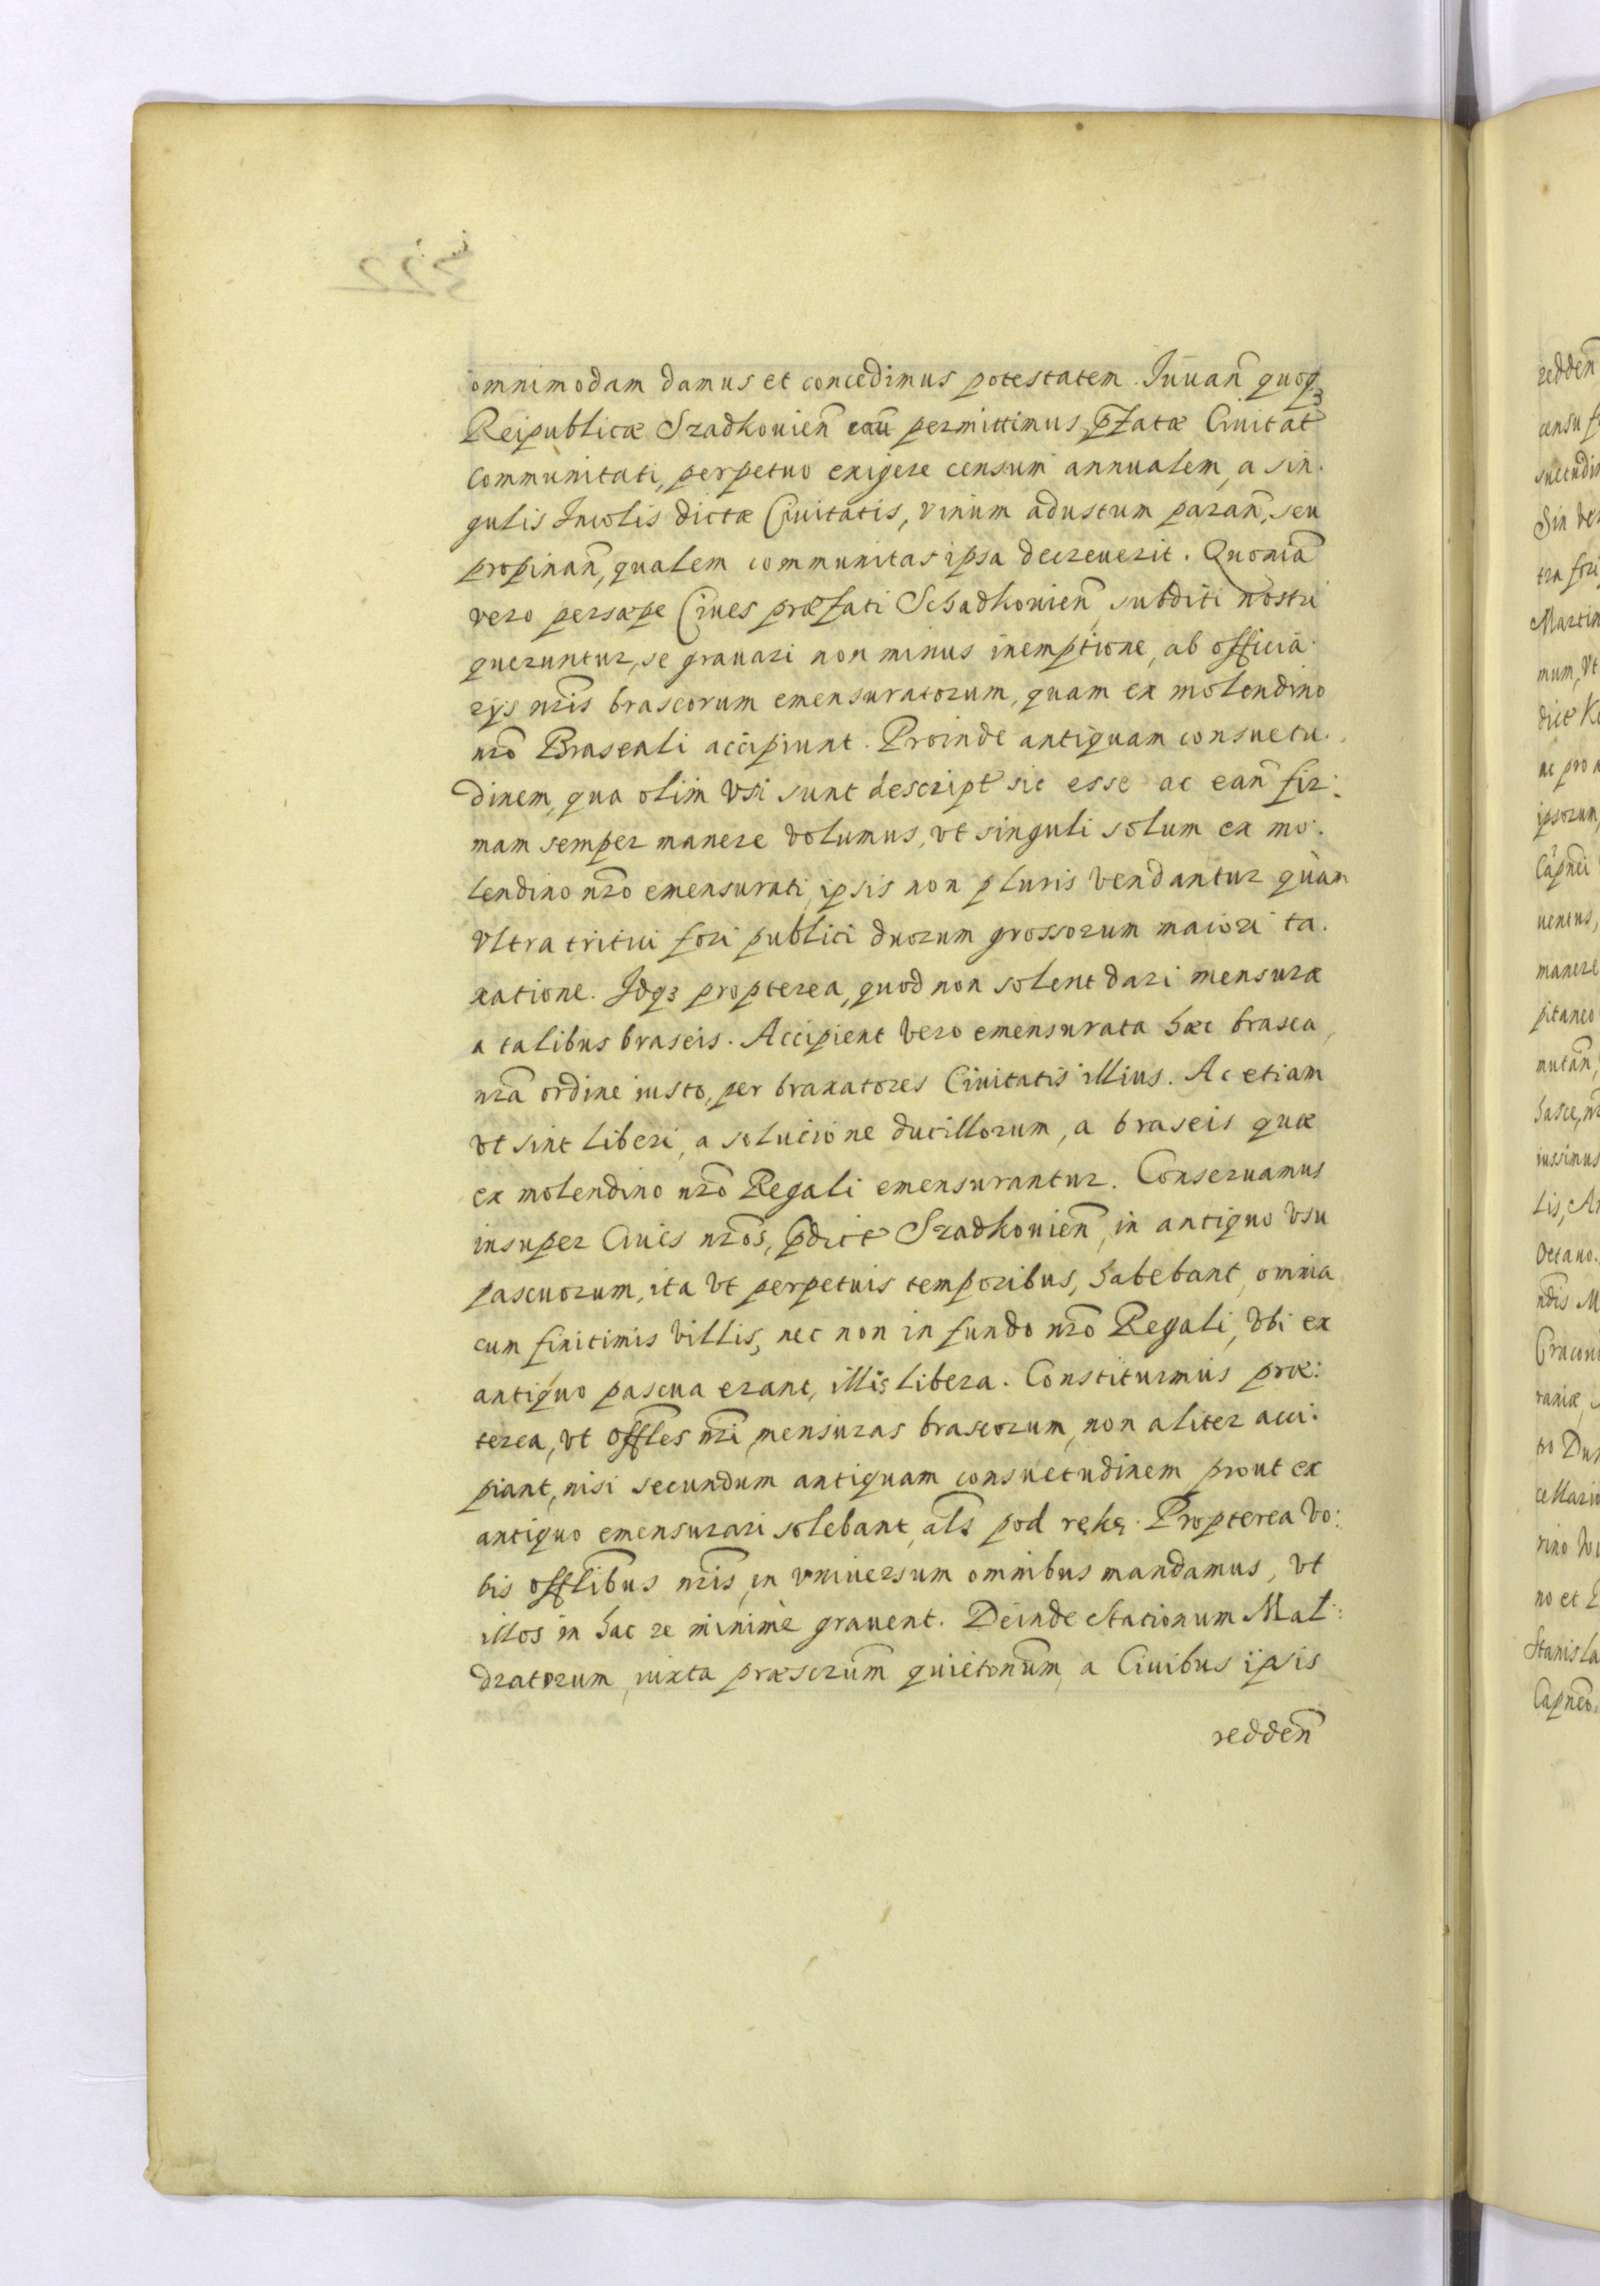 omnimodam damus et concedimus potestatem. Juuan̄ quoqȝ
Reipublicæ Szadkouien̄ cāu permittimus, p̄fatæ Ciuitat̄
communitati, perpetuo exigere censum annualem, a sin.
gulis Incolis dictæ Ciuitatis, vinum adustum paran̄, seu
propinan̄, qualem communitas ipsa decreuerit. Quoniā
vero persæpe Ciues præfati Schadkouien̄, subditi nostri
queruntur, se grauari non minus inemptione, ab officia.
rijs nr̄is braseorum emensuratorum, quam ex molendino
nr̄o Braseali accipiunt. Proinde antiquam consuetu.
dinem, qua olim vsi sunt descript̄ sic esse ac ean̄ fir:
mam semper manere volumus, vt singuli solum ex mo.
lendino nr̄o emensurati, ipsis non pluris vendantur quàm
vltra tritici fori publici duorum grossorum maiori ta.
xatione. Idqȝ propterea, quod non solent dari mensuræ
a talibus braseis. Accipient vero emensurata hæc brasea,
nr̄a ordine iusto, per braxatores Ciuitatis illius. Ac etiam
vt sint liberi, a solucione ducillorum, a braseis quæ
ex molendino nr̄o Regali emensurantur. Conseruamus
insuper Ciues nr̄os, p̄dict̄ Szadkouien̄, in antiquo vsu
pascuorum, ita vt perpetuis temporibus, habebant, omnia
cum finitimis villis, nec non in fundo nr̄o Regali, vbi ex
antiquo pascua erant, illis libera. Constiturmus præ:
terea, vt offl̄es nr̄i, mensuras braseorum, non aliter acci.
piant, nisi secundum antiquam consuetudinem prout ex
antiquo emensurari solebant, al̄s pod rękę. Propterea vo:
bis offl̄ibus nr̄is, in vniuersum omnibus mandamus, vt
illos in hac re minimè grauent. Deinde Stationum Mal:
dratorum, iuxta præscrūm quietonūm, a Ciuibus ipsis
redden̄